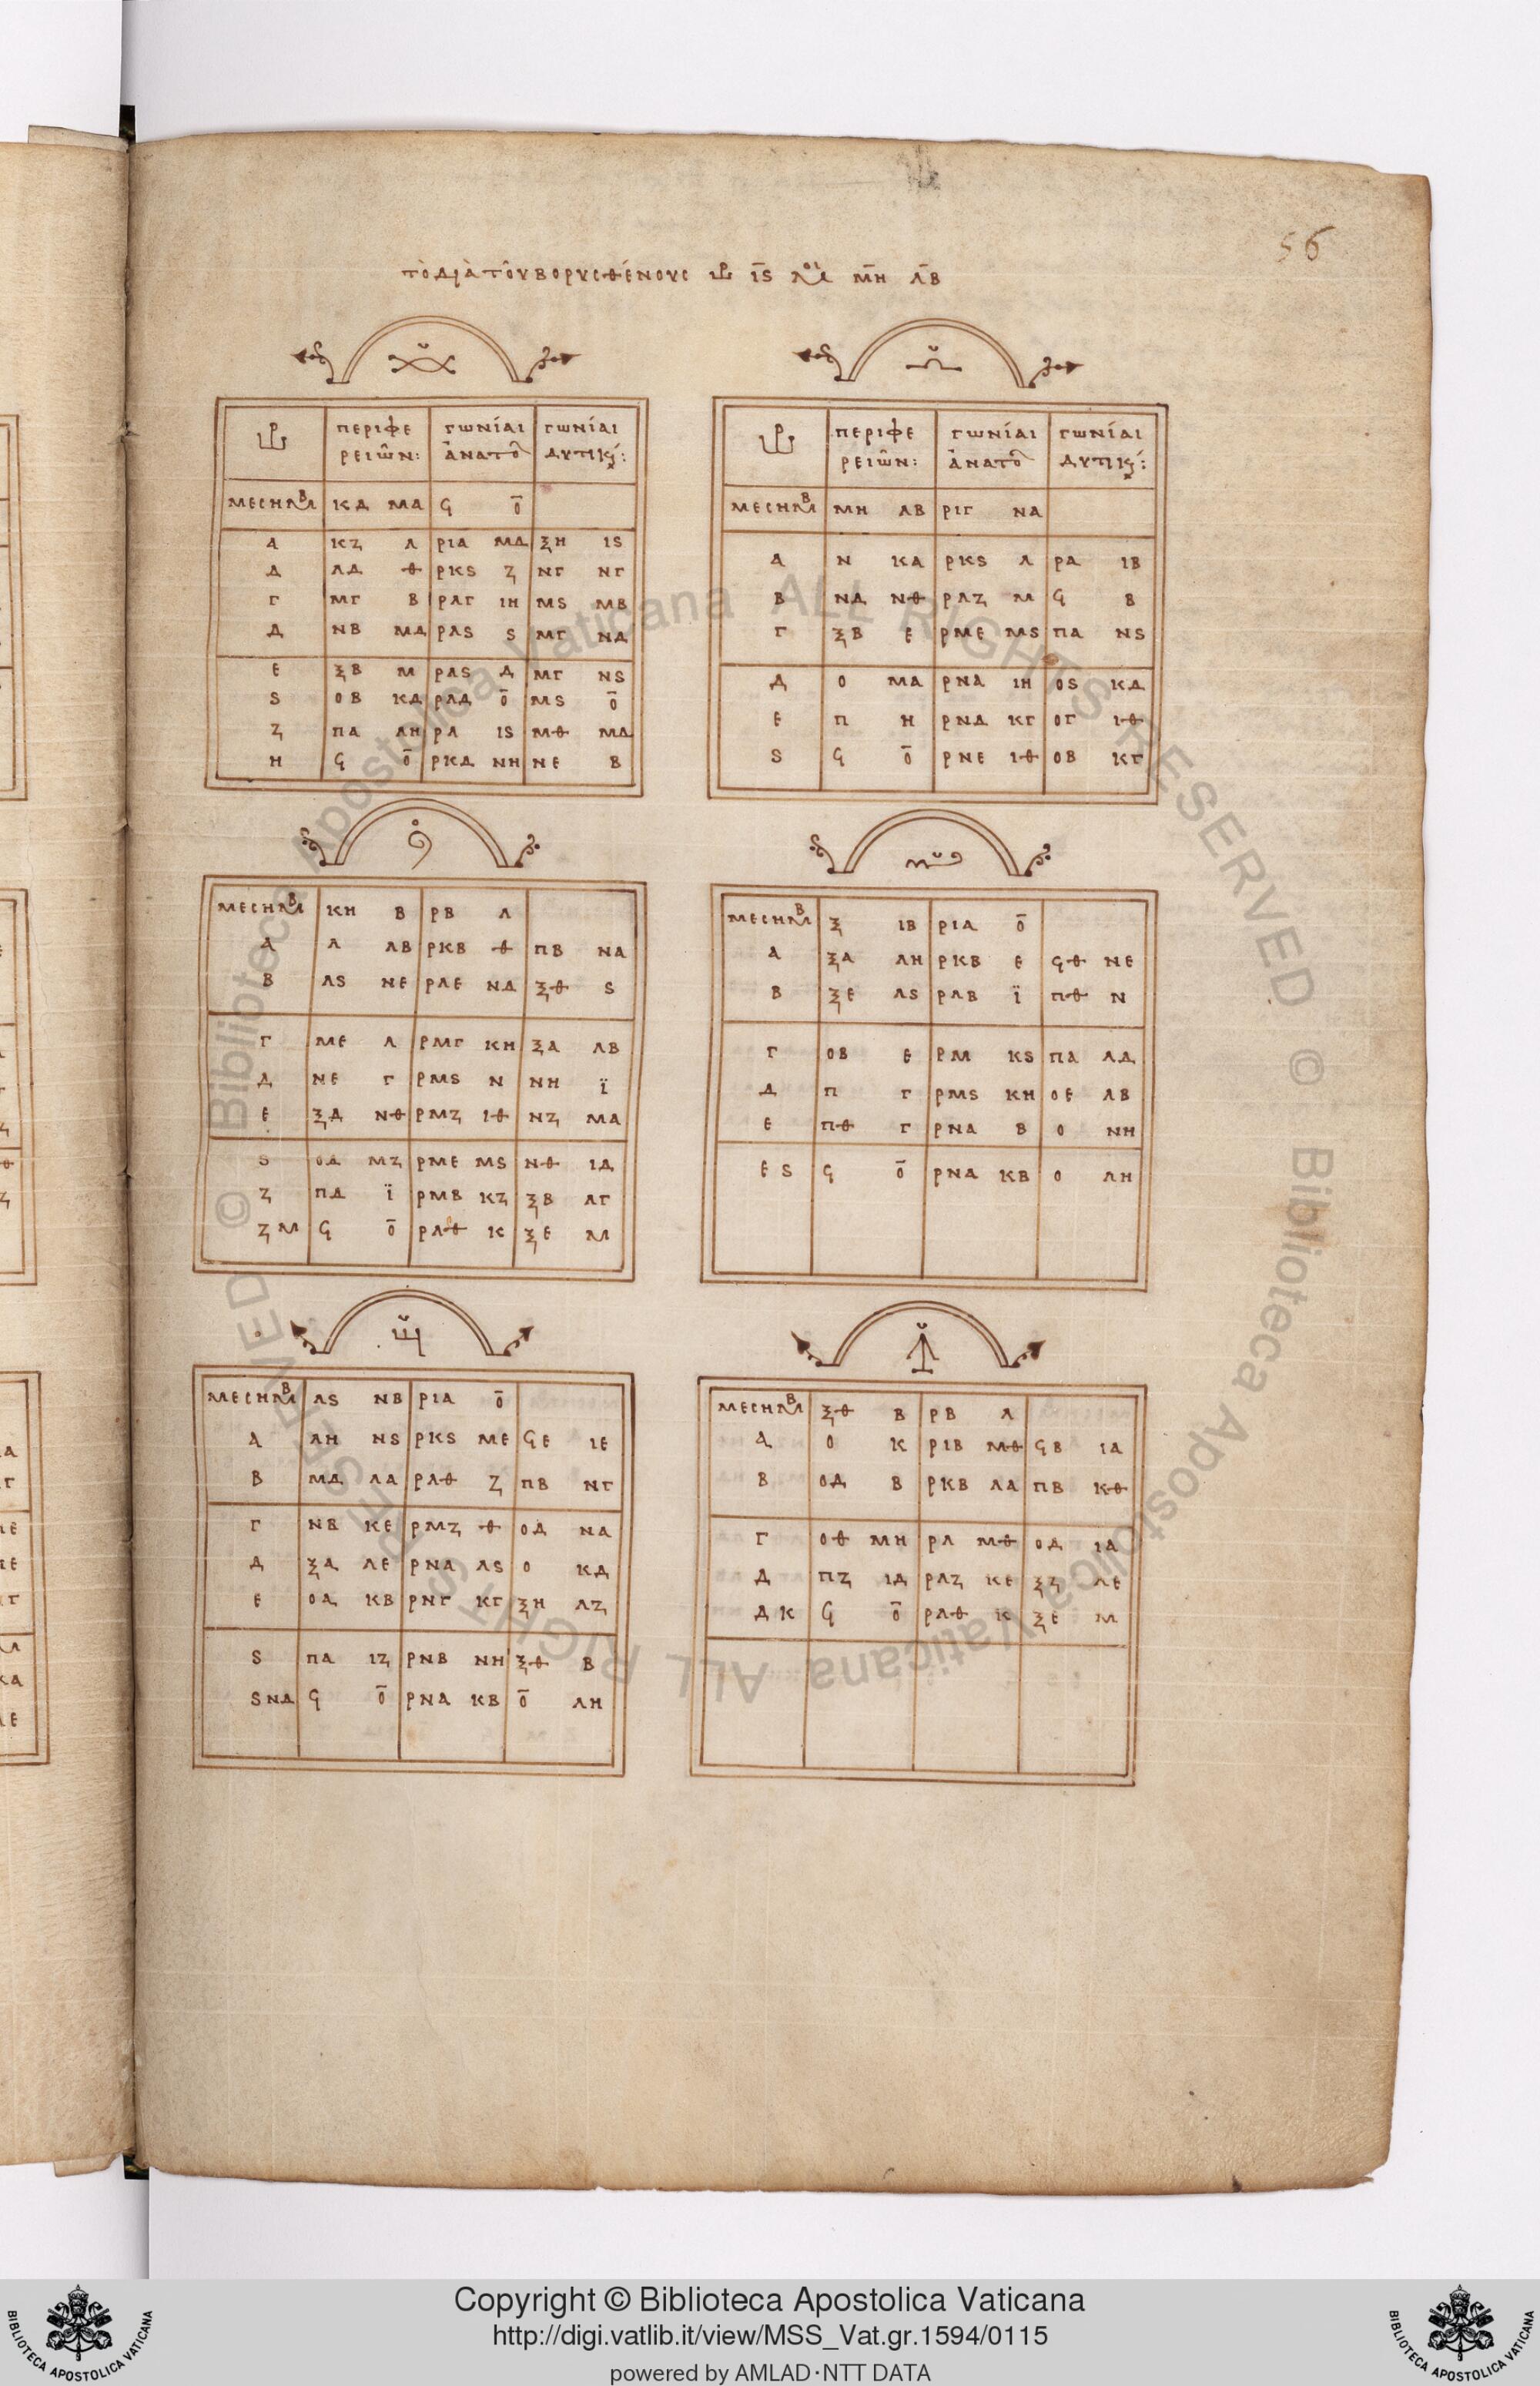 56
τὸ διὰ τοῦ βορυσθένους ὡρ ις μοι μη λβ
ὡρ περιφε γωνίαι γωνίαι
ρειῶν: ἀνατο δυτικ:
μεσημβ κδ μα ϙ ο
α κζ λ ρια μδ ξη ις
λδ θ ρκς ζ νγ νγ
γ μγ β ρλγ ιη μς μβ
δ νβ μδ ρλς ς μγ νδ
ε ξβ μ ρλς δ μγ νς
ς οβ κδ ρλδ ο μς ο
ζ πα λη ρλ ις μθ μδ
η ϙ ο ρκδ νη νε β
ὡρ περιφε γωνίαι γωνίαι
ρειῶν: ἀνατο δυτικ:
μεσημβ μη λβ ριγ να
α ν κα ρκς λ ρα ιβ
β νδ νθ ρλζ μ ϙ β
γ ξβ ε ρμε μς πα νς
δ ο μα ρνα ιη ος κδ
ε π η ρνδ κγ ογ ιθ
ς ϙ ο ρνε ιθ οβ κγ
μεσημβ κη β ρβ λ
α λ λβ ρκβ θ πβ να
β λς νε ρλε νδ ξθ ς
γ με λ ρμγ κη ξα λβ
δ νε γ ρμς ν νη ϊ
ε ξδ νθ ρμζ ιθ νζ μα
ς οδ μζ ρμε μς νθ ιδ
ζ πδ ϊ ρμβ κζ ξβ λγ
ζ μ ϙ ο ρλθ κ ξε μ
μεσημβ ξ ιβ ρια ο
α ξα λη ρκβ ε ϙθ νε
β ξε λς ρλβ ϊ πθ ν
γ οβ ε ρμ κς πα λδ
δ π γ ρμς κη οε λβ
ε πθ γ ρνα β ο νη
ε ς ϙ ο ρνα κβ ο λη
μεσημβ λς νβ ρια ο
α λη νς ρκς με ϙε ιε
β μδ λα ρλθ ζ πβ νγ
γ νβ κε ρμζ θ οδ να
δ ξα λε ρνα λς ο κδ
ε οα κβ ρνγ κγ ξη λζ
ς πα ιζ ρνβ νη ξθ β
ς νδ ϙ ο ρνα κβ ο λη
μεσημβ ξθ β ρβ λ
α ο κ ριβ μθ ϙβ ια
β οδ β ρκβ λα πβ κθ
γ οθ μη ρλ μθ οδ ια
δ πζ ιδ ρλζ κε ξζ λε
δ κ ϙ ο ρλθ κ ξε μ
© Biblioteca Apostolica Vaticana ALL RIGHTS RESERVED © Biblioteca Apostolica Vaticana ALL RIGHTS RESERVED
Copyright © Biblioteca Apostolica Vaticana
http://digi.vatlib.it/view/MSS_Vat.gr.1594/0115
powered by AMLAD·NTT DATA
BIBLIOTECA APOSTOLICA VATICANA
BIBLIOTECA APOSTOLICA VATICANA